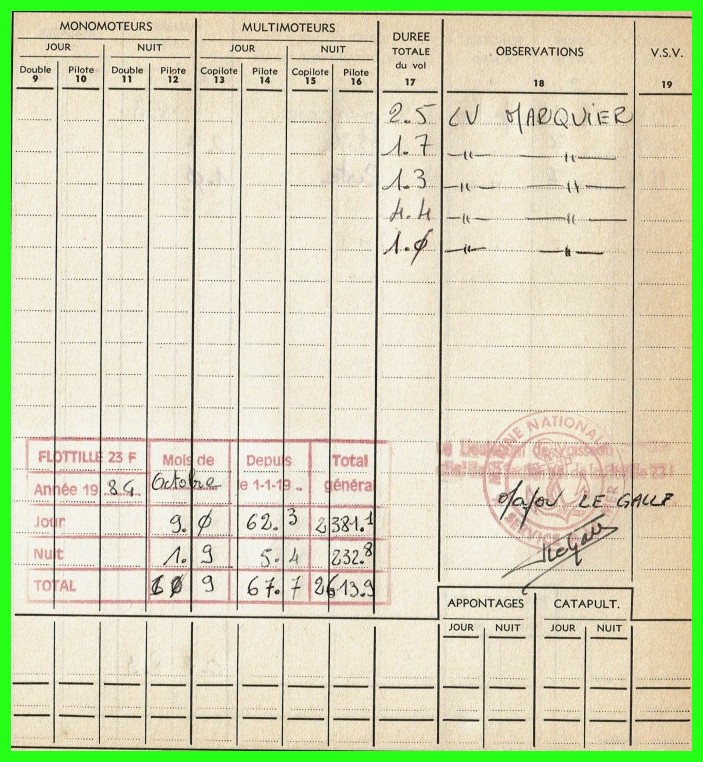 MONOMOTEURS MULTIMOTEURS DUREE TOTALE du vol OBSERVATIONS V.S.V.
JOUR NUIT JOUR NUIT
Double Pilote Double Pilote Copilote Pilote Copilote Pilote
9 10 11 12 13 14 15 16 17 18 19
2.5 LV MARQUIER
1.7 —"— —"—
1.3 —"— —"—
4.4 —"— —"—
1.Ø —"— —"—
FLOTTILLE 23 F Mois de Depuis Total
Année 19 Octobre le 1-1-19 général
Jour 9.Ø 62.3 2381.1
Nuit 1.9 5.4 232.8
TOTAL 1Ø 9 67.7 2613.9
MARINE NATIONALE
Le Lieutenant de Vaisseau
de la flottille 23 F
Major LE GALL
APPONTAGES CATAPULT.
JOUR NUIT JOUR NUIT